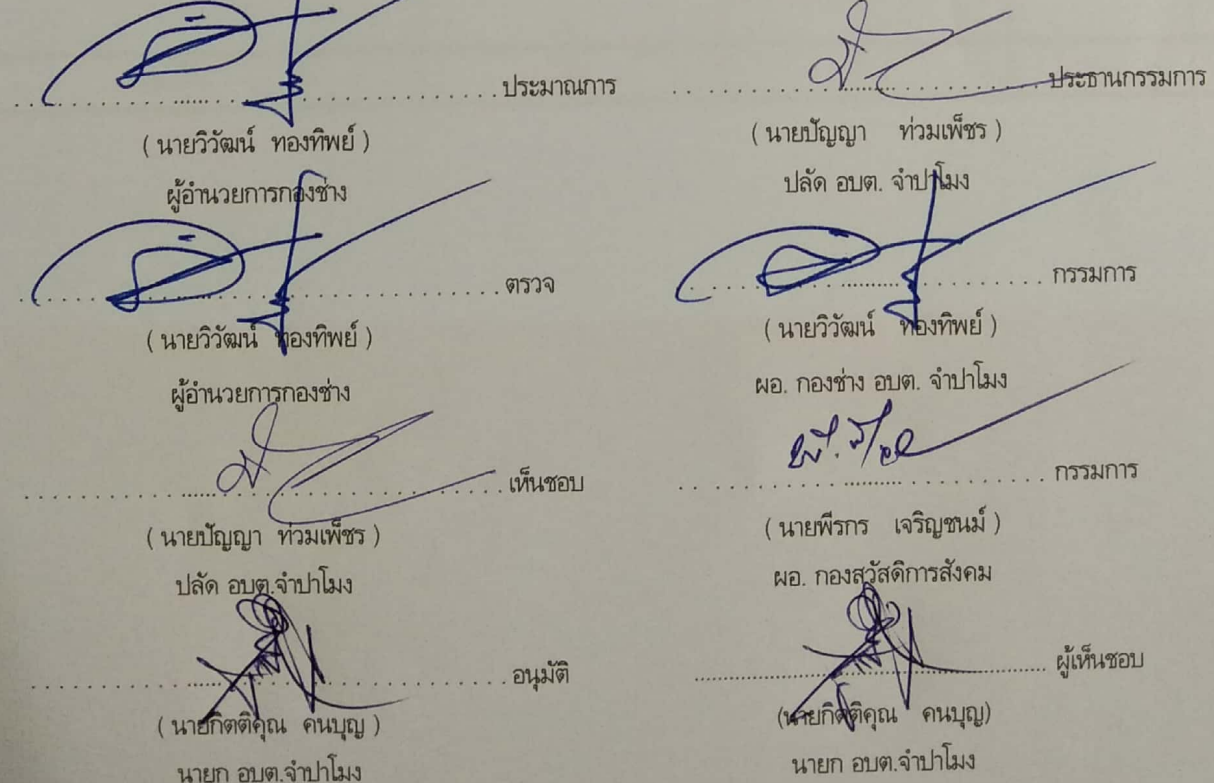 ประมาณการ
( นายวิวัฒน์ ทองทิพย์ )
ผู้อำนวยการกองช่าง
ตรวจ
( นายวิวัฒน์ ทองทิพย์ )
ผู้อำนวยการกองช่าง
เห็นชอบ
( นายปัญญา ท่วมเพ็ชร )
ปลัด อบต.จำปาโมง
อนุมัติ
( นายกิตติคุณ คนบุญ )
นายก อบต.จำปาโมง
ประธานกรรมการ
( นายปัญญา ท่วมเพ็ชร )
ปลัด อบต. จำปาโมง
กรรมการ
( นายวิวัฒน์ ทองทิพย์ )
ผอ. กองช่าง อบต. จำปาโมง
กรรมการ
( นายพีรกร เจริญชนม์ )
ผอ. กองสวัสดิการสังคม
ผู้เห็นชอบ
(นายกิตติคุณ คนบุญ)
นายก อบต.จำปาโมง